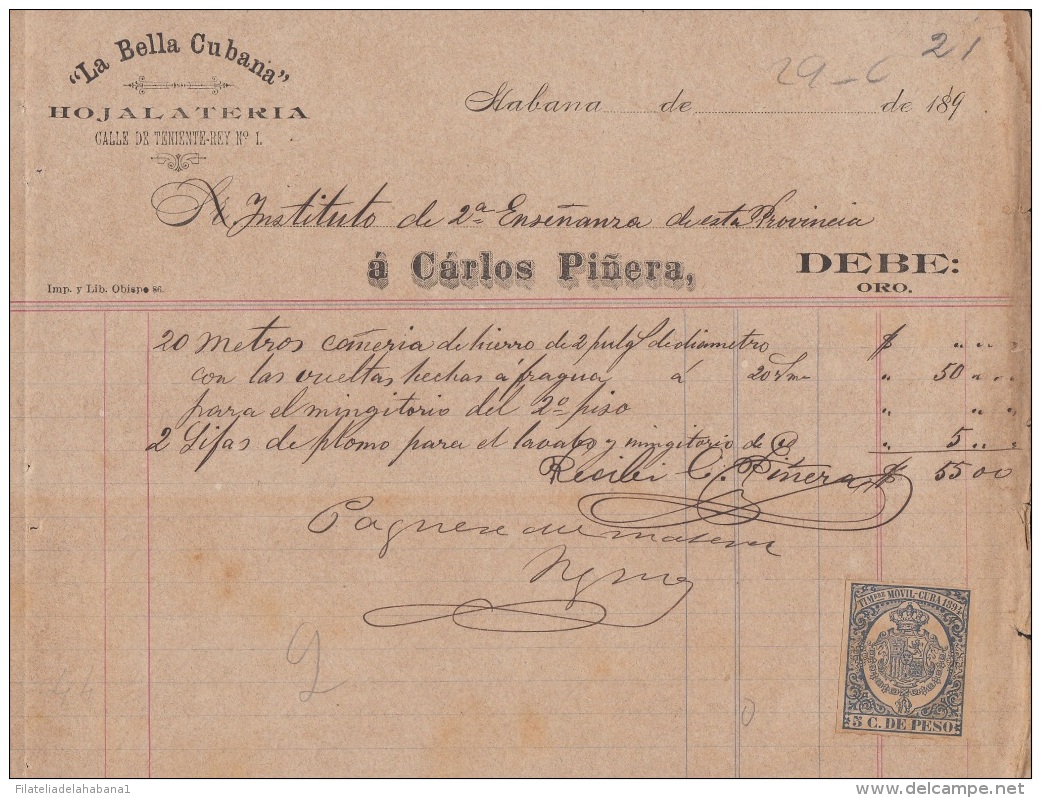 21
29-6
"La Bella Cubana"
HOJALATERIA
CALLE DE TENIENTE-REY Nº 1.
Habana de de 189
Instituto de 2ª Enseñanza de esta Provincia
á Cárlos Piñera,
DEBE:
ORO.
Imp. y Lib. Obispo 86.
20 metros cañeria de hierro de 2 pulgs de diametro $
con las vueltas hechas á fragua á 20 " 50
para el mingitorio del 2º piso "
2 Sifas de plomo para el lavabo y mingitorio de " 5
Recibi C. Piñera $ 55 00
Paguese
2
0
TIMBRE MOVIL-CUBA 1894
5 C. DE PESO
Filateliadelahabana1
delcampe.net